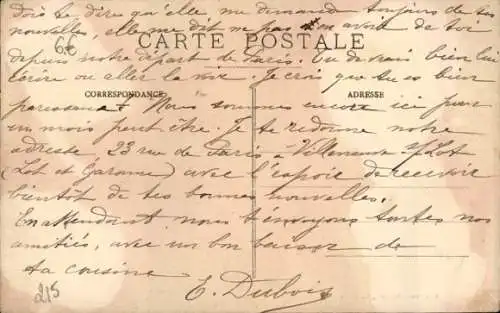 dois te dire qu'elle me demande toujours de tes
nouvelles, elle me dit ne pas en avoir de toi
CARTE POSTALE
depuis notre départ de Paris. Tu devrais bien lui
écrire ou aller la voir. Je crois que tu es bien
CORRESPONDANCE
ADRESSE
paresseuse. Nous sommes encore ici pour
un mois peut être. Je te redonne notre
adresse 23 rue de Paris à Villeneuve s/Lot
(Lot et Garonne) avec l'espoir de recevoir
bientôt de tes bonnes nouvelles.
En attendant nous t'envoyons toutes nos
amitiés, avec un bon baiser de
ta cousine
E. Dubois
215